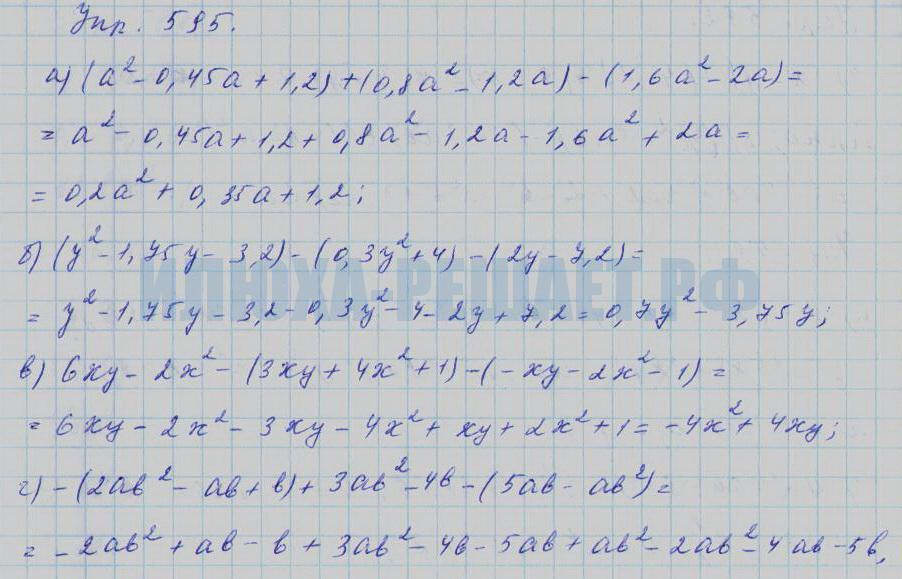 Упр. 595.
а) (a² - 0,45a + 1,2) + (0,8a² - 1,2a) - (1,6a² - 2a) =
= a² - 0,45a + 1,2 + 0,8a² - 1,2a - 1,6a² + 2a =
= 0,2a² + 0,35a + 1,2;
б) (y² - 1,75y - 3,2) - (0,3y² + 4) - (2y - 7,2) =
ИЛЮХА-РЕШАЕТ.РФ
= y² - 1,75y - 3,2 - 0,3y² - 4 - 2y + 7,2 = 0,7y² - 3,75y;
в) 6xy - 2x² - (3xy + 4x² + 1) - (-xy - 2x² - 1) =
= 6xy - 2x² - 3xy - 4x² + xy + 2x² + 1 = -4x² + 4xy;
г) -(2ab² - ab + b) + 3ab² - 4b - (5ab - ab²) =
= -2ab² + ab - b + 3ab² - 4b - 5ab + ab² - 2ab² - 4ab - 5b,